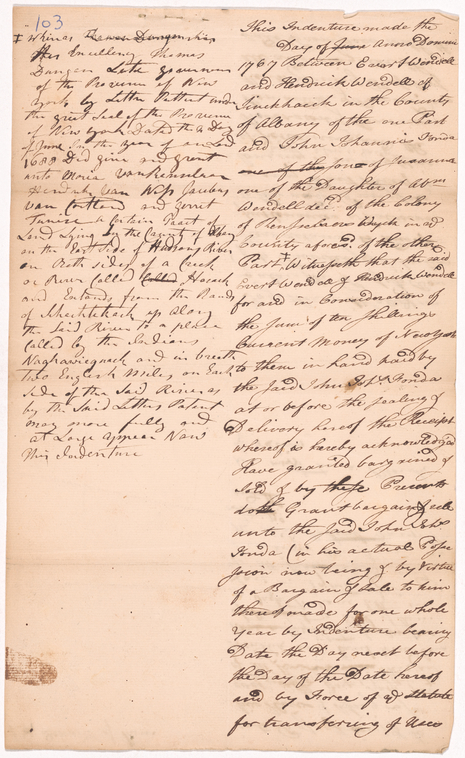 103
‡ Whereas
His Excellency Thomas
Dungan Late Governour
of the Province of New
York by Letters Patent under
the great Seal of the Province
of New York Dated the Day
of June in the year of our Lord
1688 Did give and grant
unto Maria Van Renselaer
Hendrick Van Ness Jacobus
Van Cortland and Gerret
Tunise a Certain Tract of
Land Lying in the County of Albany
on the East Side of Hudsons River
on Both sides of a Creek
or River Called Called Hosack
and Extends from the Bounds
of Schachtekock up along
the Said River to a place
Called by the Indians
Nachawickquack and in breadth
two English Miles on Each
Side of the Said River as
by the Said Letters Patent
may more fully and
at Large Appear Now
This Indenture
This Indenture made the
Day of June Anno Domini
1767 Between Evert Wendell
and Hendrick Wendell of
in the County
of Albany of the one Part
and John Johannis Fonda
one of the Sons of Susanna
one of the Daughter of Abm
Wendell decd. of the Colony
of Renselaerwyck in sd
County afores. of the other
Part. Witnesseth that the said
Evert Wendell & Hendrick Wendell
for and in Consideration of
the Sum of ten Shillings
Current Money of New York
to them in hand paid by
the Said John Fonda
at or before the Sealing &
Delivery hereof the Receipt
whereof is hereby acknowledged
Have granted bargained &
Sold & by these Presents
doth Grant bargain & sell
unto the Said John
Fonda (in his actual Posse
ssion now being & by Virtue
of a Bargain & Sale to him
thereof made for one whole
Year by Indenture bearing
Date the Day next before
the Day of the Date hereof
and by Force of the Statute
for transferring of Uses